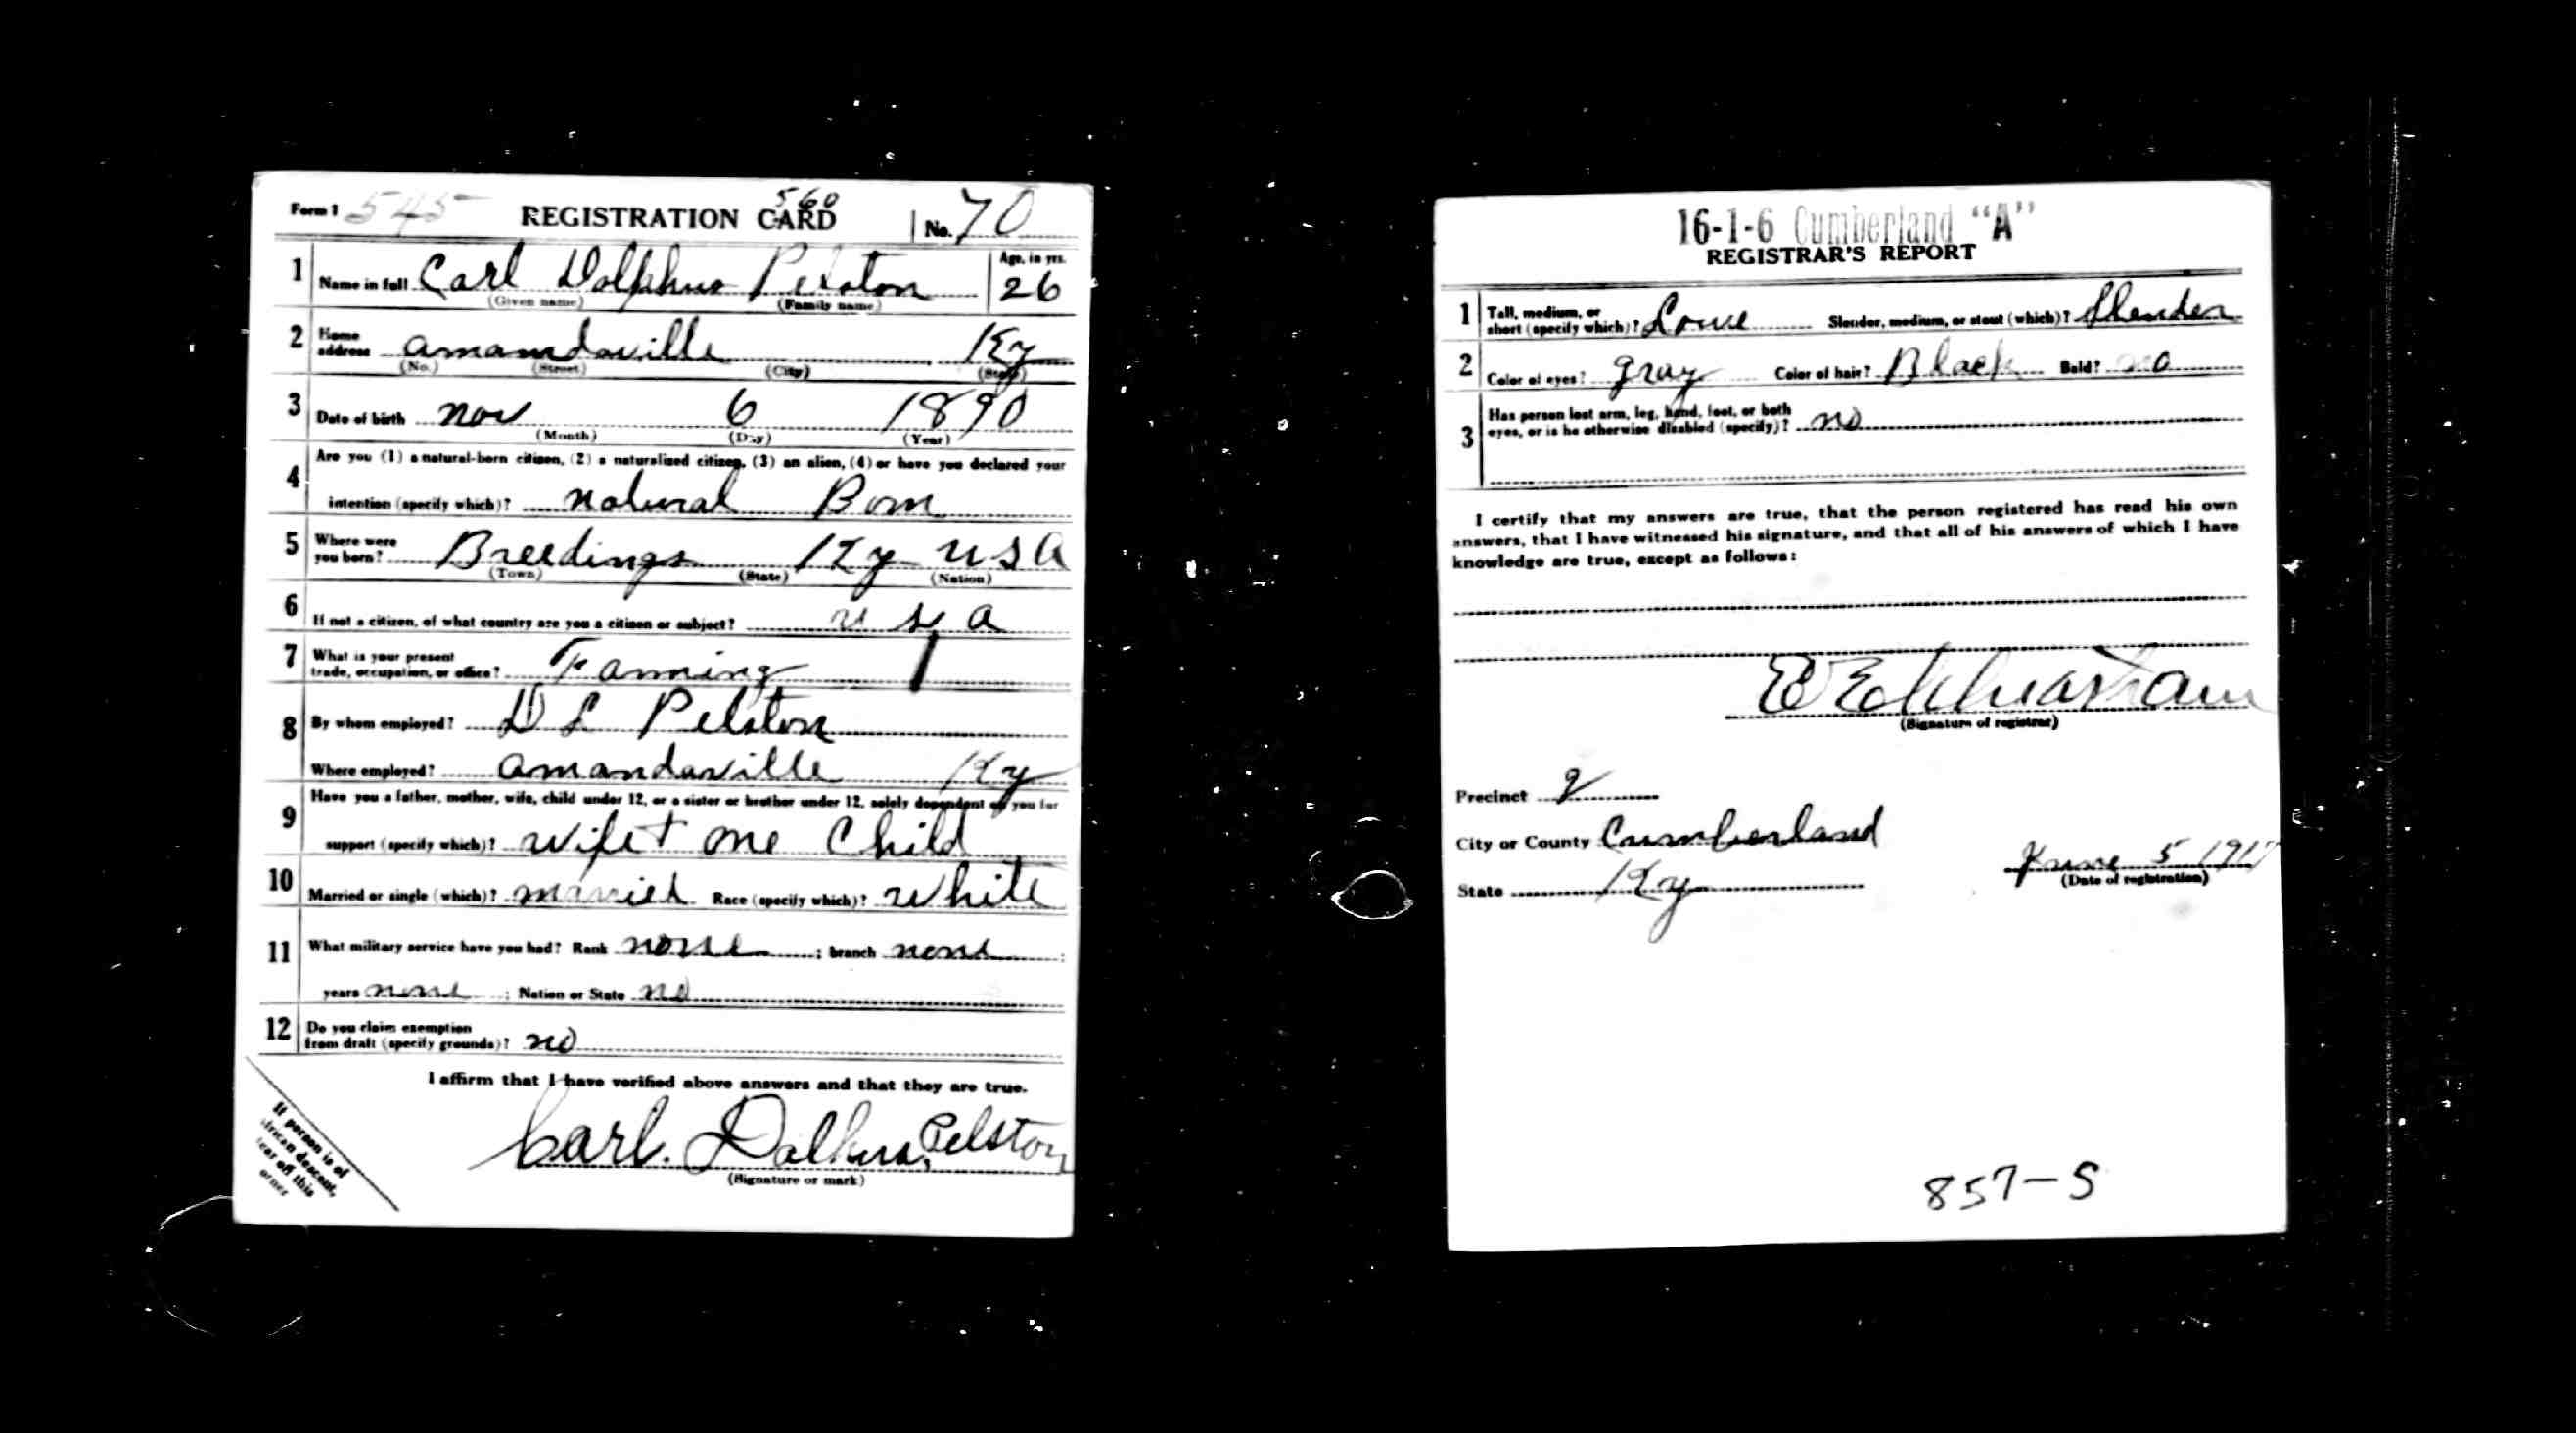 Form 1 545 REGISTRATION CARD 560 No. 70
1 Name in full Carl Dolphus Pelston Age, in yrs. 26
(Given name) (Family name)
2 Home address Amandaville Ky
(No.) (Street) (City) (State)
3 Date of birth Nov 6 1890
(Month) (Day) (Year)
4 Are you (1) a natural-born citizen, (2) a naturalized citizen, (3) an alien, (4) or have you declared your
intention (specify which)? natural Born
5 Where were you born? Breedings Ky USA
(Town) (State) (Nation)
6 If not a citizen, of what country are you a citizen or subject? U S A
7 What is your present trade, occupation, or office? Farming
8 By whom employed? D L Pelston
Where employed? Amandaville Ky
9 Have you a father, mother, wife, child under 12, or a sister or brother under 12, solely dependent on you for
support (specify which)? Wife + one Child
10 Married or single (which)? married Race (specify which)? White
11 What military service have you had? Rank none ; branch none ;
years none ; Nation or State no
12 Do you claim exemption from draft (specify grounds)? no
I affirm that I have verified above answers and that they are true.
Carl. Dolphus Pelston
(Signature or mark)
If person is of
African descent,
tear off this
corner
16-1-6 Cumberland "A"
REGISTRAR'S REPORT
1 Tall, medium, or short (specify which)? Slender, medium, or stout (which)? Slender
2 Color of eyes? gray Color of hair? Black Bald? no
3 Has person lost arm, leg, hand, foot, or both
eyes, or is he otherwise disabled (specify)? no
I certify that my answers are true, that the person registered has read his own
answers, that I have witnessed his signature, and that all of his answers of which I have
knowledge are true, except as follows:
(Signature of registrar)
Precinct
City or County Cumberland
State Ky
June 5 1917
(Date of registration)
857-S